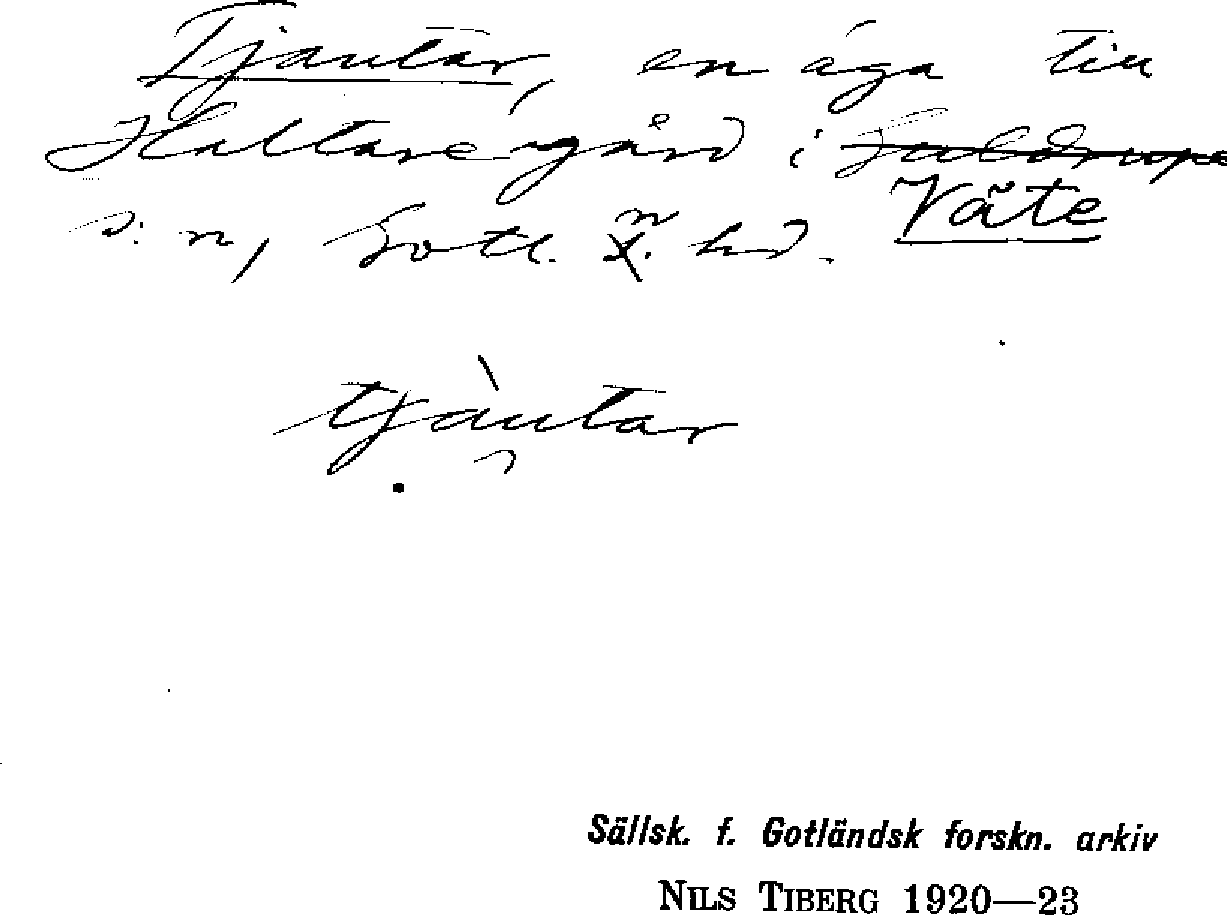 Tjautar, en äga till
Hallvaregård i Guldrupe Väte
s:n, Gotl. n. hd.
tjàutar
Sällsk. f. Gotländsk forskn. arkiv
NILS TIBERG 1920—23